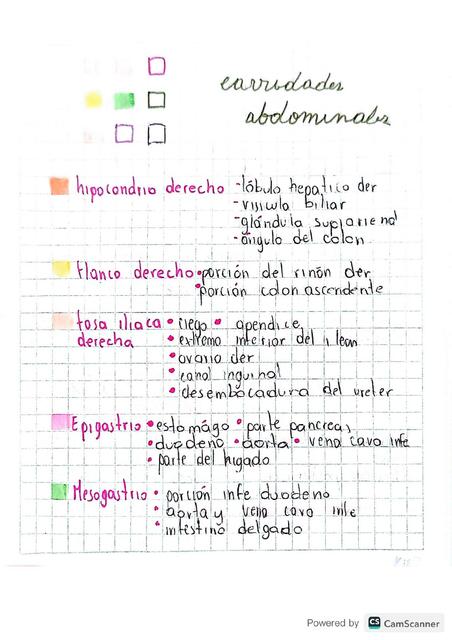 cavidades
abdominales
hipocondrio derecho -lóbulo hepatico der
-visicula biliar
-glándula suprarrenal
-ángulo del colon
flanco derecho •porción del rinón der
•porción colon ascendente
fosa iliaca • ciego • apendice
derecha • extremo inferior del ileon
•ovario der
•canal inguinal
•desembocadura del ureter
Epigastrio •estomágo •parte pancreas
•duodeno •aorta • vena cava infe
•parte del higado
Mesogastrio • porción infe duodeno
• aorta y vena cava infe
•intestino delgado
Powered by CS CamScanner